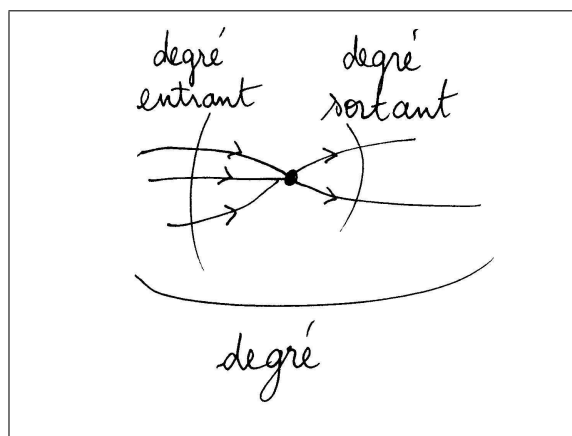 degré
entrant
degré
sortant
degré